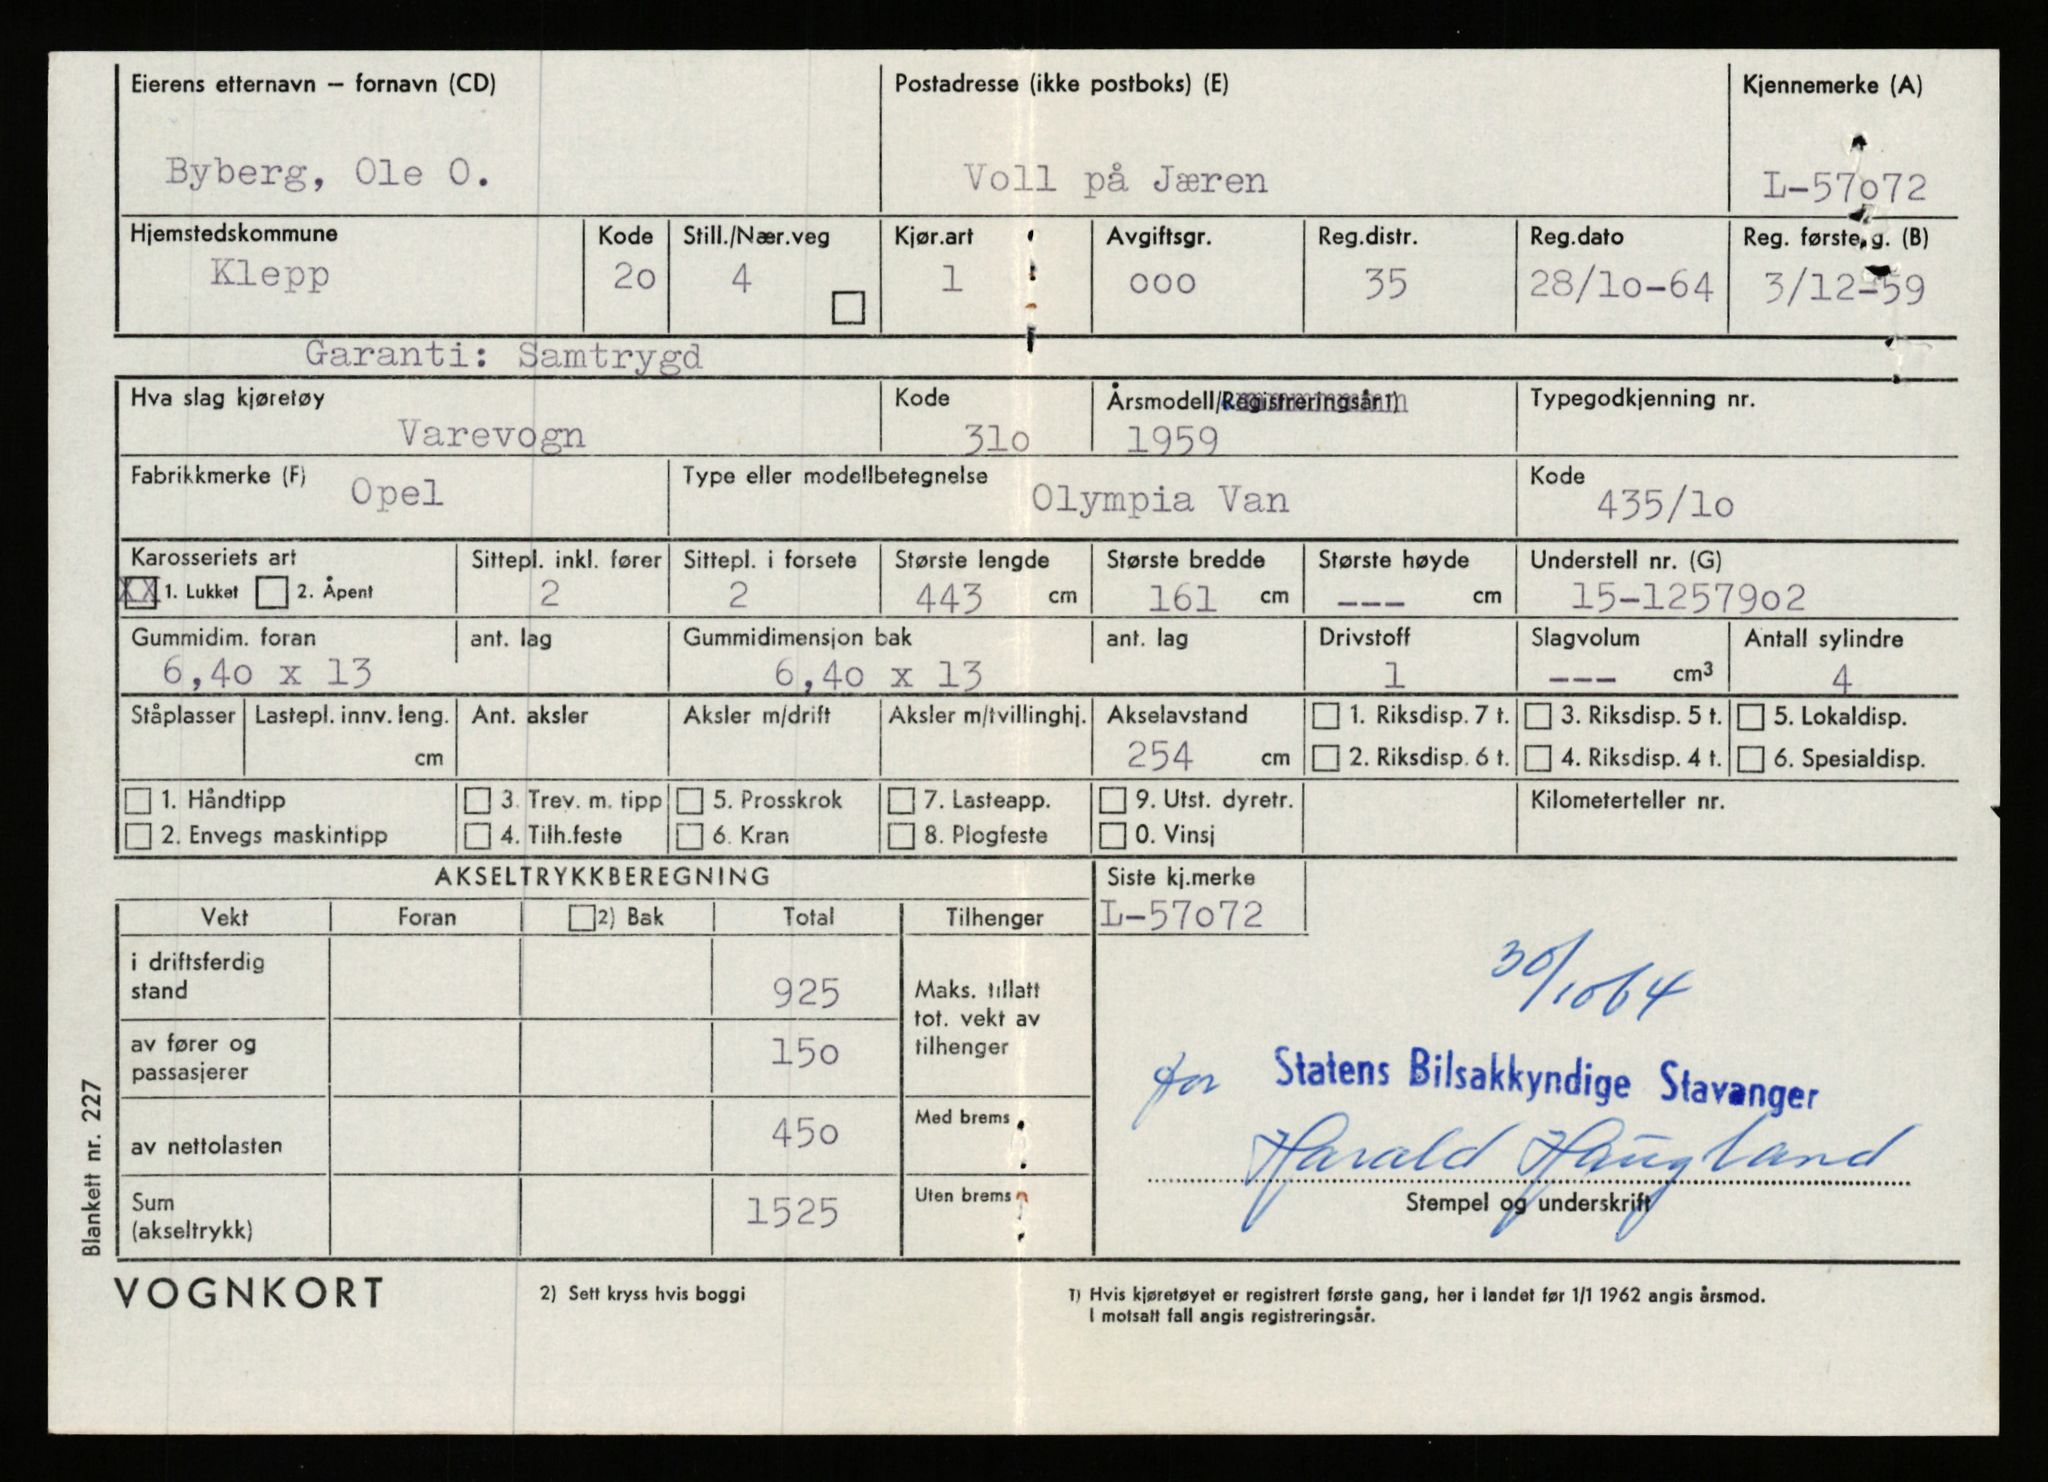 Eierens etternavn – fornavn (CD) Postadresse (ikke postboks) (E) Kjennemerke (A)
Byberg, Ole O. Voll på Jæren L-57o72
Hjemstedskommune Kode Still./Nær.veg Kjør.art Avgiftsgr. Reg.distr. Reg.dato Reg. første g. (B)
Klepp 2o 4 1 ooo 35 28/1o-64 3/12-59
Garanti: Samtrygd
Hva slag kjøretøy Kode Årsmodell/Registreringsår 1) Typegodkjenning nr.
Varevogn 31o 1959
Fabrikkmerke (F) Type eller modellbetegnelse Kode
Opel Olympia Van 435/1o
Karosseriets art Sittepl. inkl. fører Sittepl. i forsete Største lengde Største bredde Største høyde Understell nr. (G)
XX 1. Lukket 2. Åpent 2 2 443 cm 161 cm --- cm 15-12579o2
Gummidim. foran ant. lag Gummidimensjon bak ant. lag Drivstoff Slagvolum Antall sylindre
6,4o x 13 6,4o x 13 1 --- cm3 4
Ståplasser Lastepl. innv. leng. Ant. aksler Aksler m/drift Aksler m/tvillinghj. Akselavstand 1. Riksdisp. 7 t. 3. Riksdisp. 5 t. 5. Lokaldisp.
cm 254 cm 2. Riksdisp. 6 t. 4. Riksdisp. 4 t. 6. Spesialdisp.
1. Håndtipp 3. Trev. m. tipp 5. Prosskrok 7. Lasteapp. 9. Utst. dyretr. Kilometerteller nr.
2. Envegs maskintipp 4. Tilh.feste 6. Kran 8. Plogfeste 0. Vinsj
AKSELTRYKKBEREGNING Siste kj.merke
Vekt Foran 2) Bak Total Tilhenger L-57o72
i driftsferdig
stand 925 Maks. tillatt
tot. vekt av
tilhenger
30/10 64
av fører og
passasjerer 15o
for Statens Bilsakkyndige Stavanger
av nettolasten 45o Med brems
Harald Haugland
Sum
(akseltrykk) 1525 Uten brems
Stempel og underskrift
Blankett nr. 227
VOGNKORT 2) Sett kryss hvis boggi 1) Hvis kjøretøyet er registrert første gang, her i landet før 1/1 1962 angis årsmod.
I motsatt fall angis registreringsår.